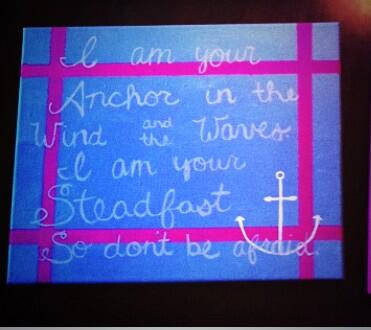 I am your
Anchor in the
Wind and the Waves.
I am your
Steadfast
So don't be afraid.